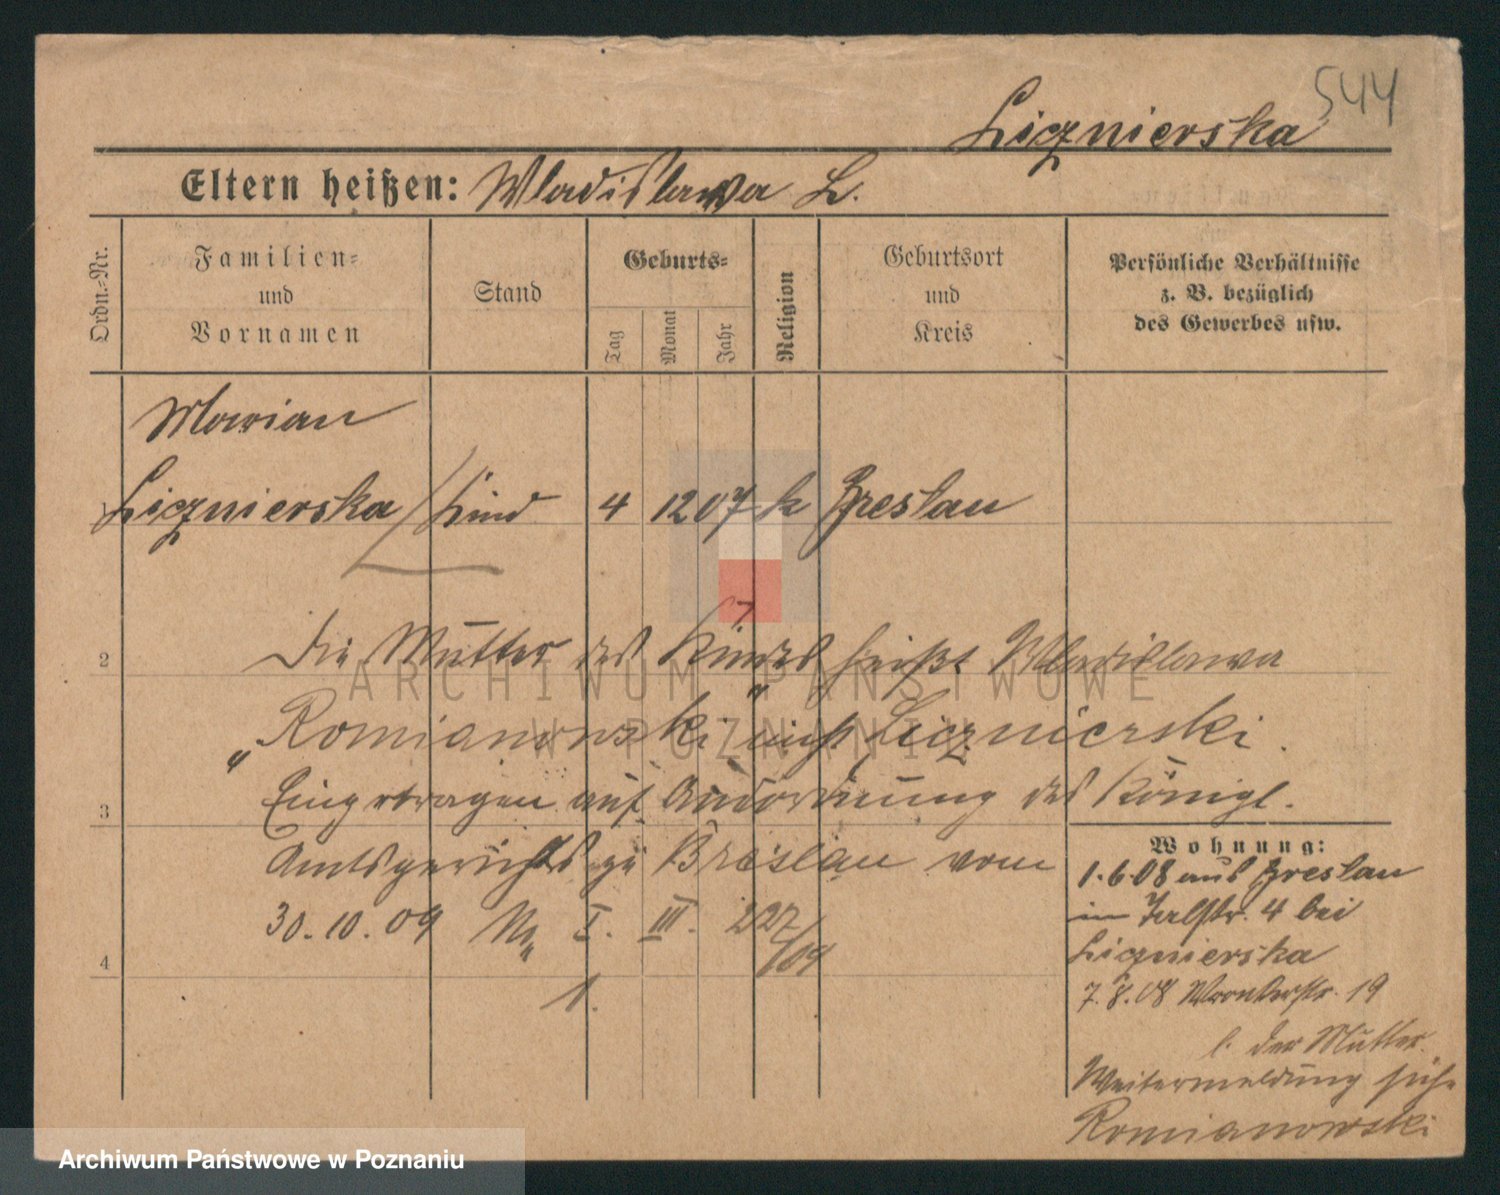 544
Licznierska
Eltern heißen: Wladislawa L.
Ordn.-Nr.
Familien-
und
Vornamen
Stand
Geburts-
Tag
Monat
Jahr
Religion
Geburtsort
und
Kreis
Persönliche Verhältnisse
z. B. bezüglich
des Gewerbes usw.
Marian
Licznierska Kind 4 12 07 k Breslau
2
Die Mutter des Kindes heißt Wladislawa
„Romianowski" nicht Licznierski.
3
Eingetragen auf Anordnung des Königl.
Amtsgerichts zu Breslau vom
30.10.09 No I. III. 227/09
4
1.
Wohnung:
1.6.08 aus Breslau
in Talstr. 4 bei
Licznierska
7.8.08 Wronkerstr. 19
b. der Mutter.
Weitermeldung siehe
Romianowski
ARCHIWUM PAŃSTWOWE
W POZNANIU
Archiwum Państwowe w Poznaniu